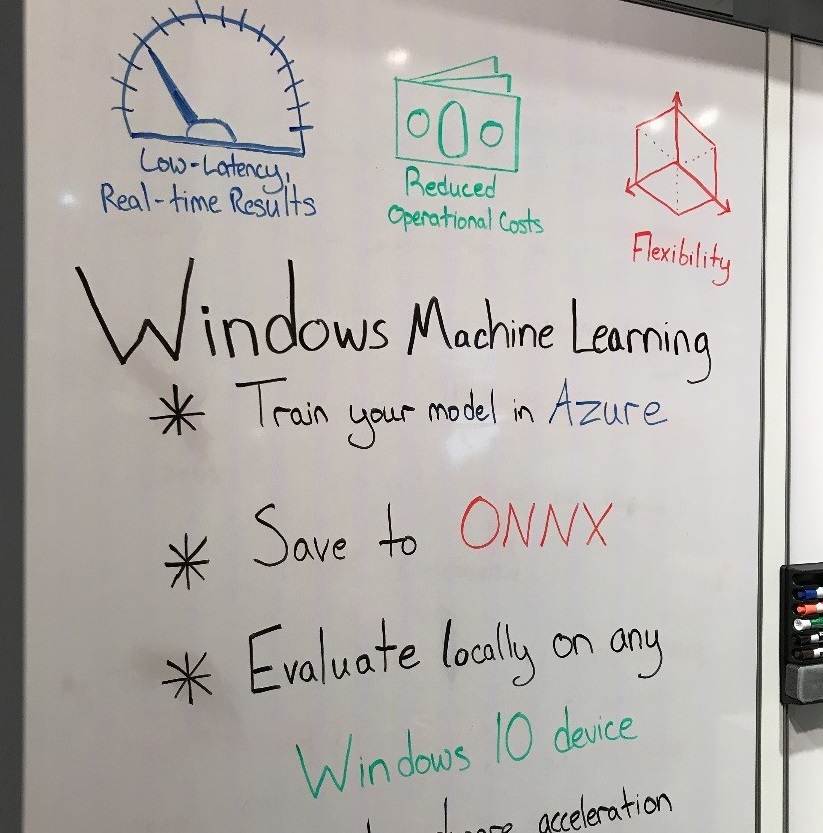 Low-Latency,
Real-time Results
Reduced
Operational Costs
Flexibility
Windows Machine Learning
* Train your model in Azure
* Save to ONNX
* Evaluate locally on any
Windows 10 device
acceleration